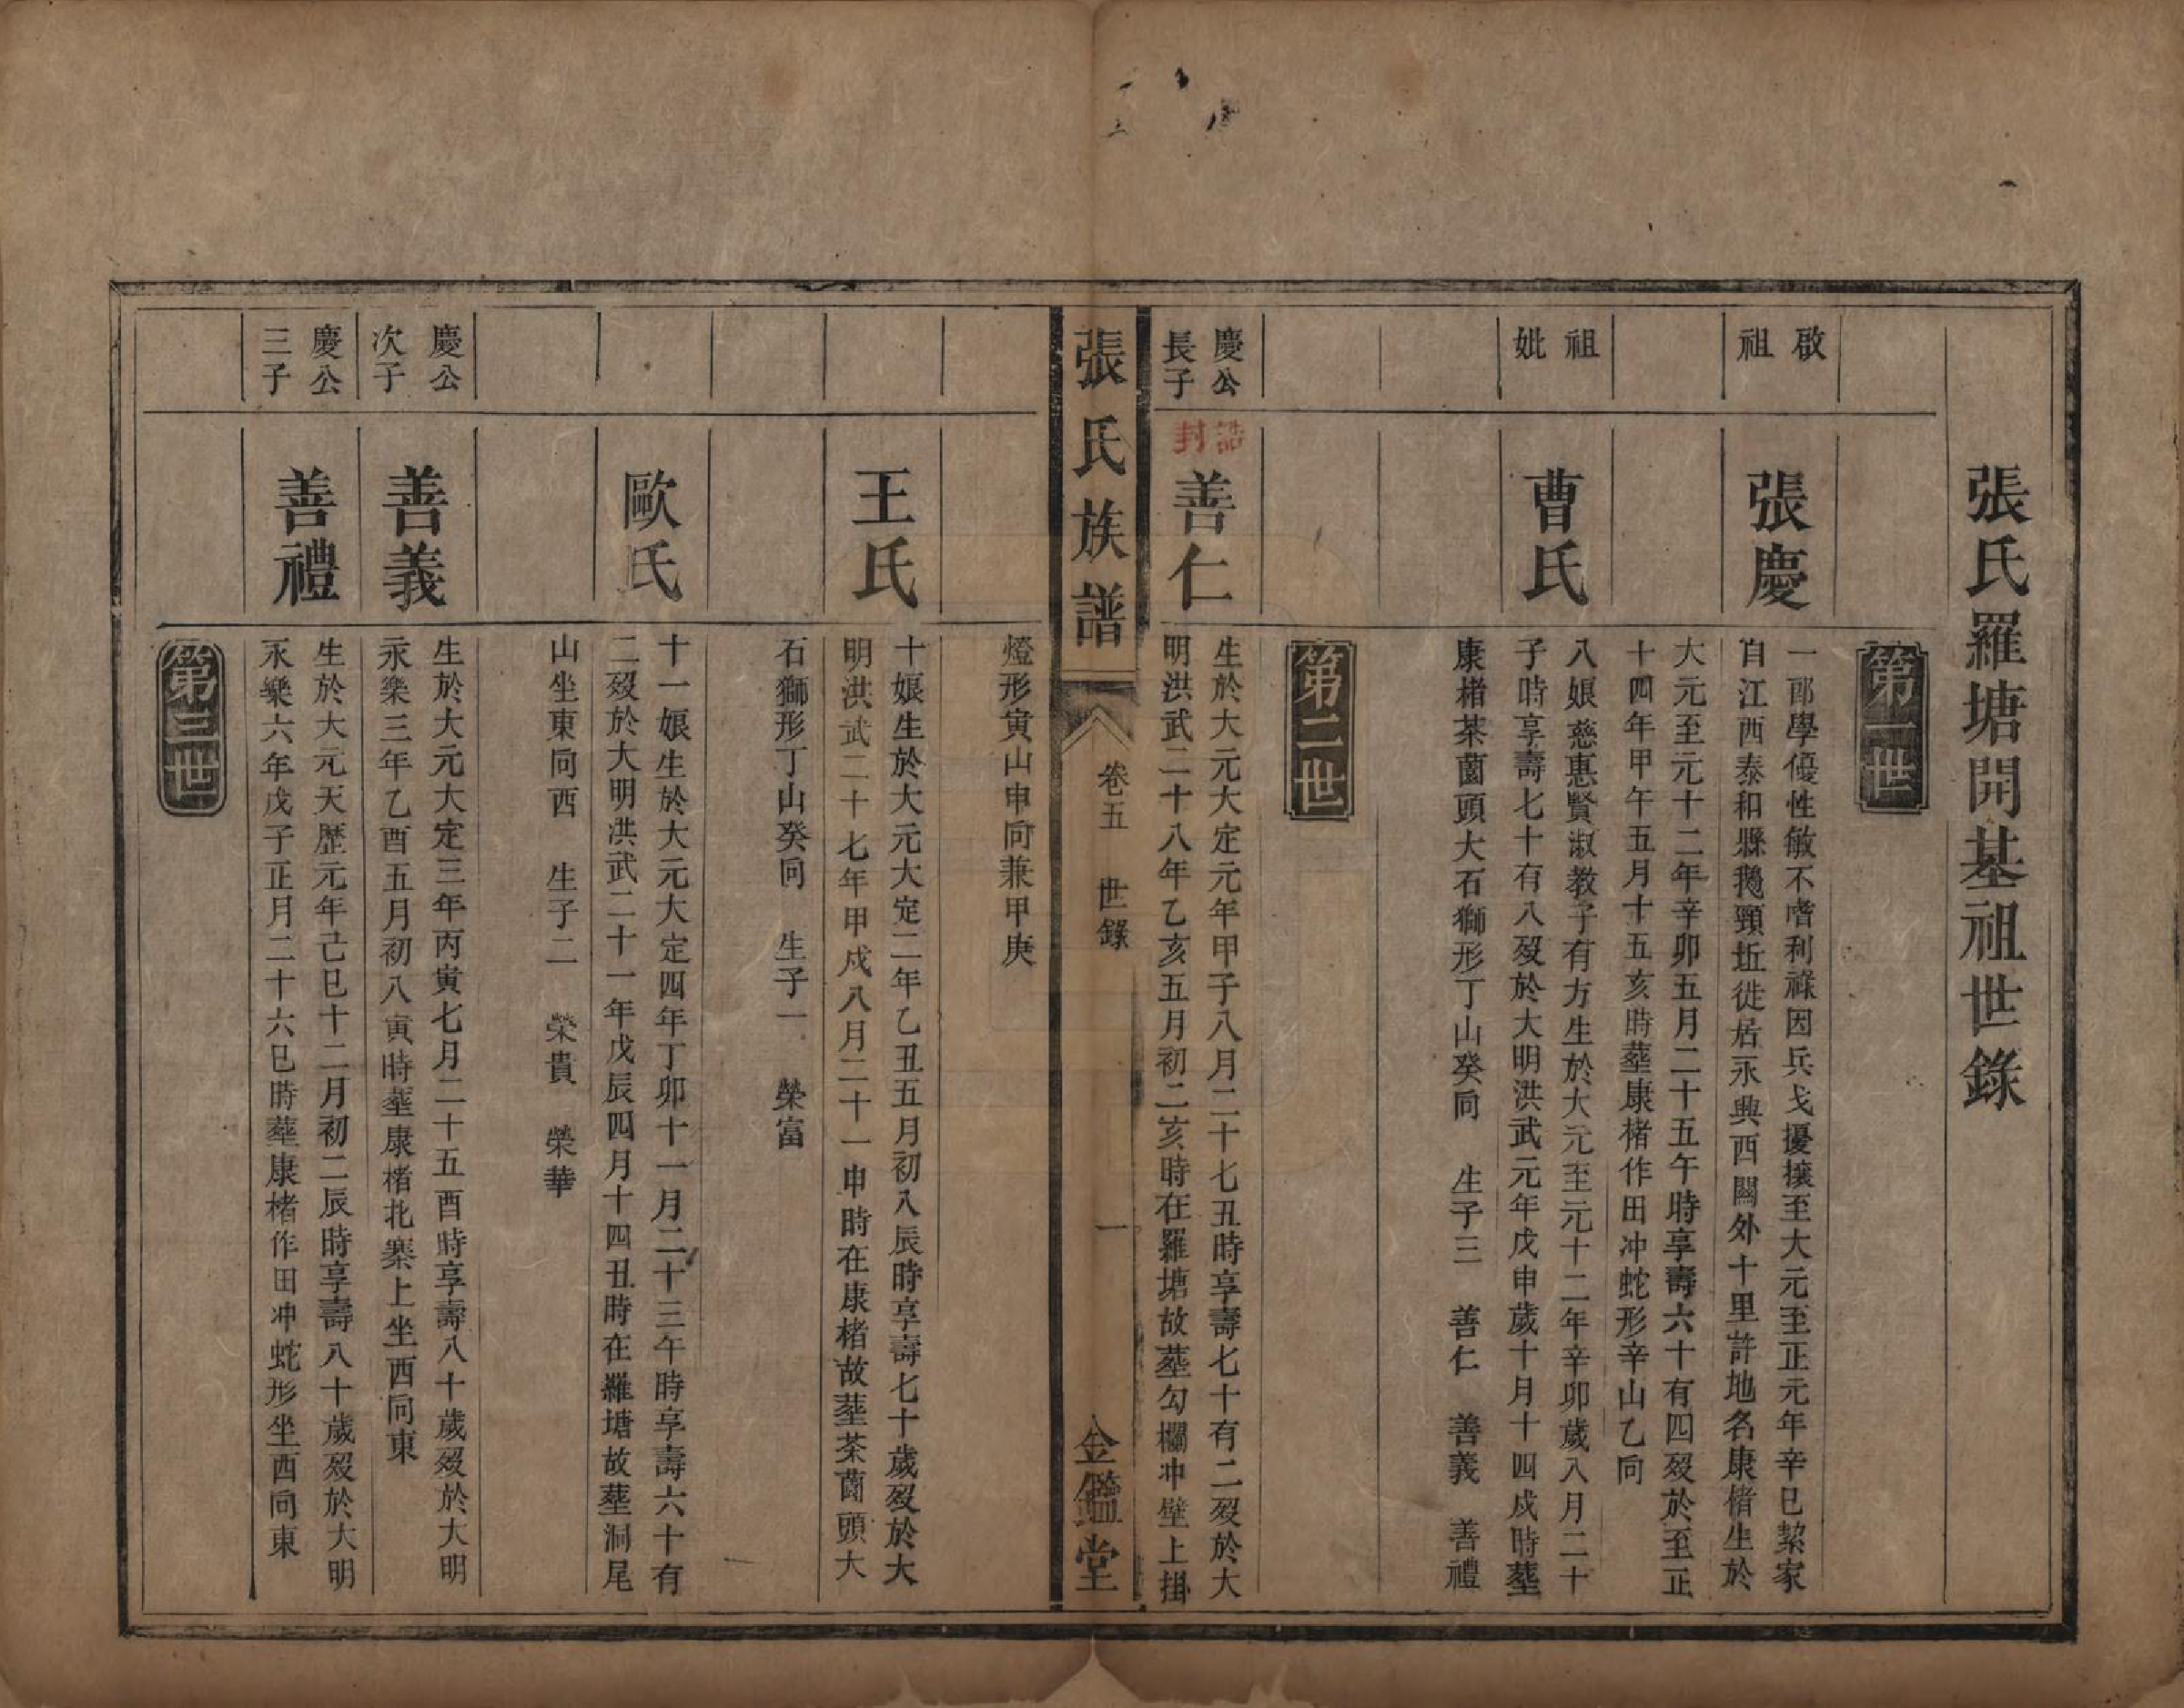 張氏羅塘開基祖世錄
第一世
啟祖
張慶
一郎學優性敏不嗜利祿因兵戈擾攘至大元至正元年辛巳絜家
自江西泰和縣鵝頸坵徙居永興西關外十里許地名康楮生於
大元至元十二年辛卯五月二十五午時享壽六十有四歿於至正
十四年甲午五月十五亥時塟康楮作田冲蛇形辛山乙向
祖妣
曹氏
八娘慈惠賢淑教子有方生於大元至元十二年辛卯歲八月二十
子時享壽七十有八歿於大明洪武元年戊申歲十月十四戍時塟
康楮茶薗頭大石獅形丁山癸向 生子三 善仁 善義 善禮
第二世
慶公長子
誥封
善仁
生於大元大定元年甲子八月二十七丑時享壽七十有二歿於大
明洪武二十八年乙亥五月初二亥時在羅塘故塟勾欄冲壁上掛
張氏族譜
卷五 世錄
一
金鑑堂
燈形寅山申向兼甲庚
王氏
十娘生於大元大定二年乙丑五月初八辰時享壽七十歲歿於大
明洪武二十七年甲戍八月二十一申時在康楮故塟茶薗頭大
石獅形丁山癸向 生子一 榮富
歐氏
十一娘生於大元大定四年丁卯十一月二十三午時享壽六十有
二歿於大明洪武二十一年戊辰四月十四丑時在羅塘故塟洞尾
山坐東向西 生子二 榮貴 榮華
慶公次子
善義
生於大元大定三年丙寅七月二十五酉時享壽八十歲歿於大明
永樂三年乙酉五月初八寅時塟康楮北寨上坐西向東
慶公三子
善禮
生於大元天歷元年己巳十二月初二辰時享壽八十歲歿於大明
永樂六年戊子正月二十六巳時塟康楮作田冲蛇形坐西向東
第三世